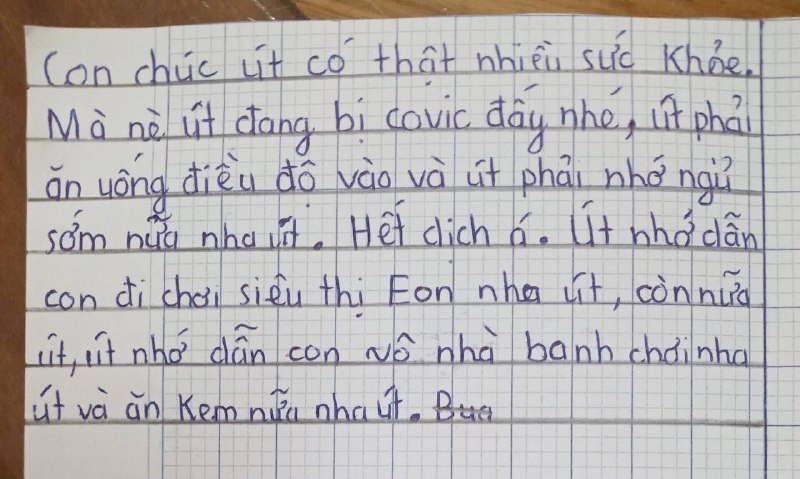 Con chúc út có thật nhiều sức khỏe.
Mà nè út đang bị covic đấy nhé, út phải
ăn uống điều độ vào và út phải nhớ ngủ
sớm nữa nha út. Hết dịch á. Út nhớ dẫn
con đi chơi siêu thị Eon nha út, còn nữa
út, út nhớ dẫn con vô nhà banh chơi nha
út và ăn kem nữa nha út.